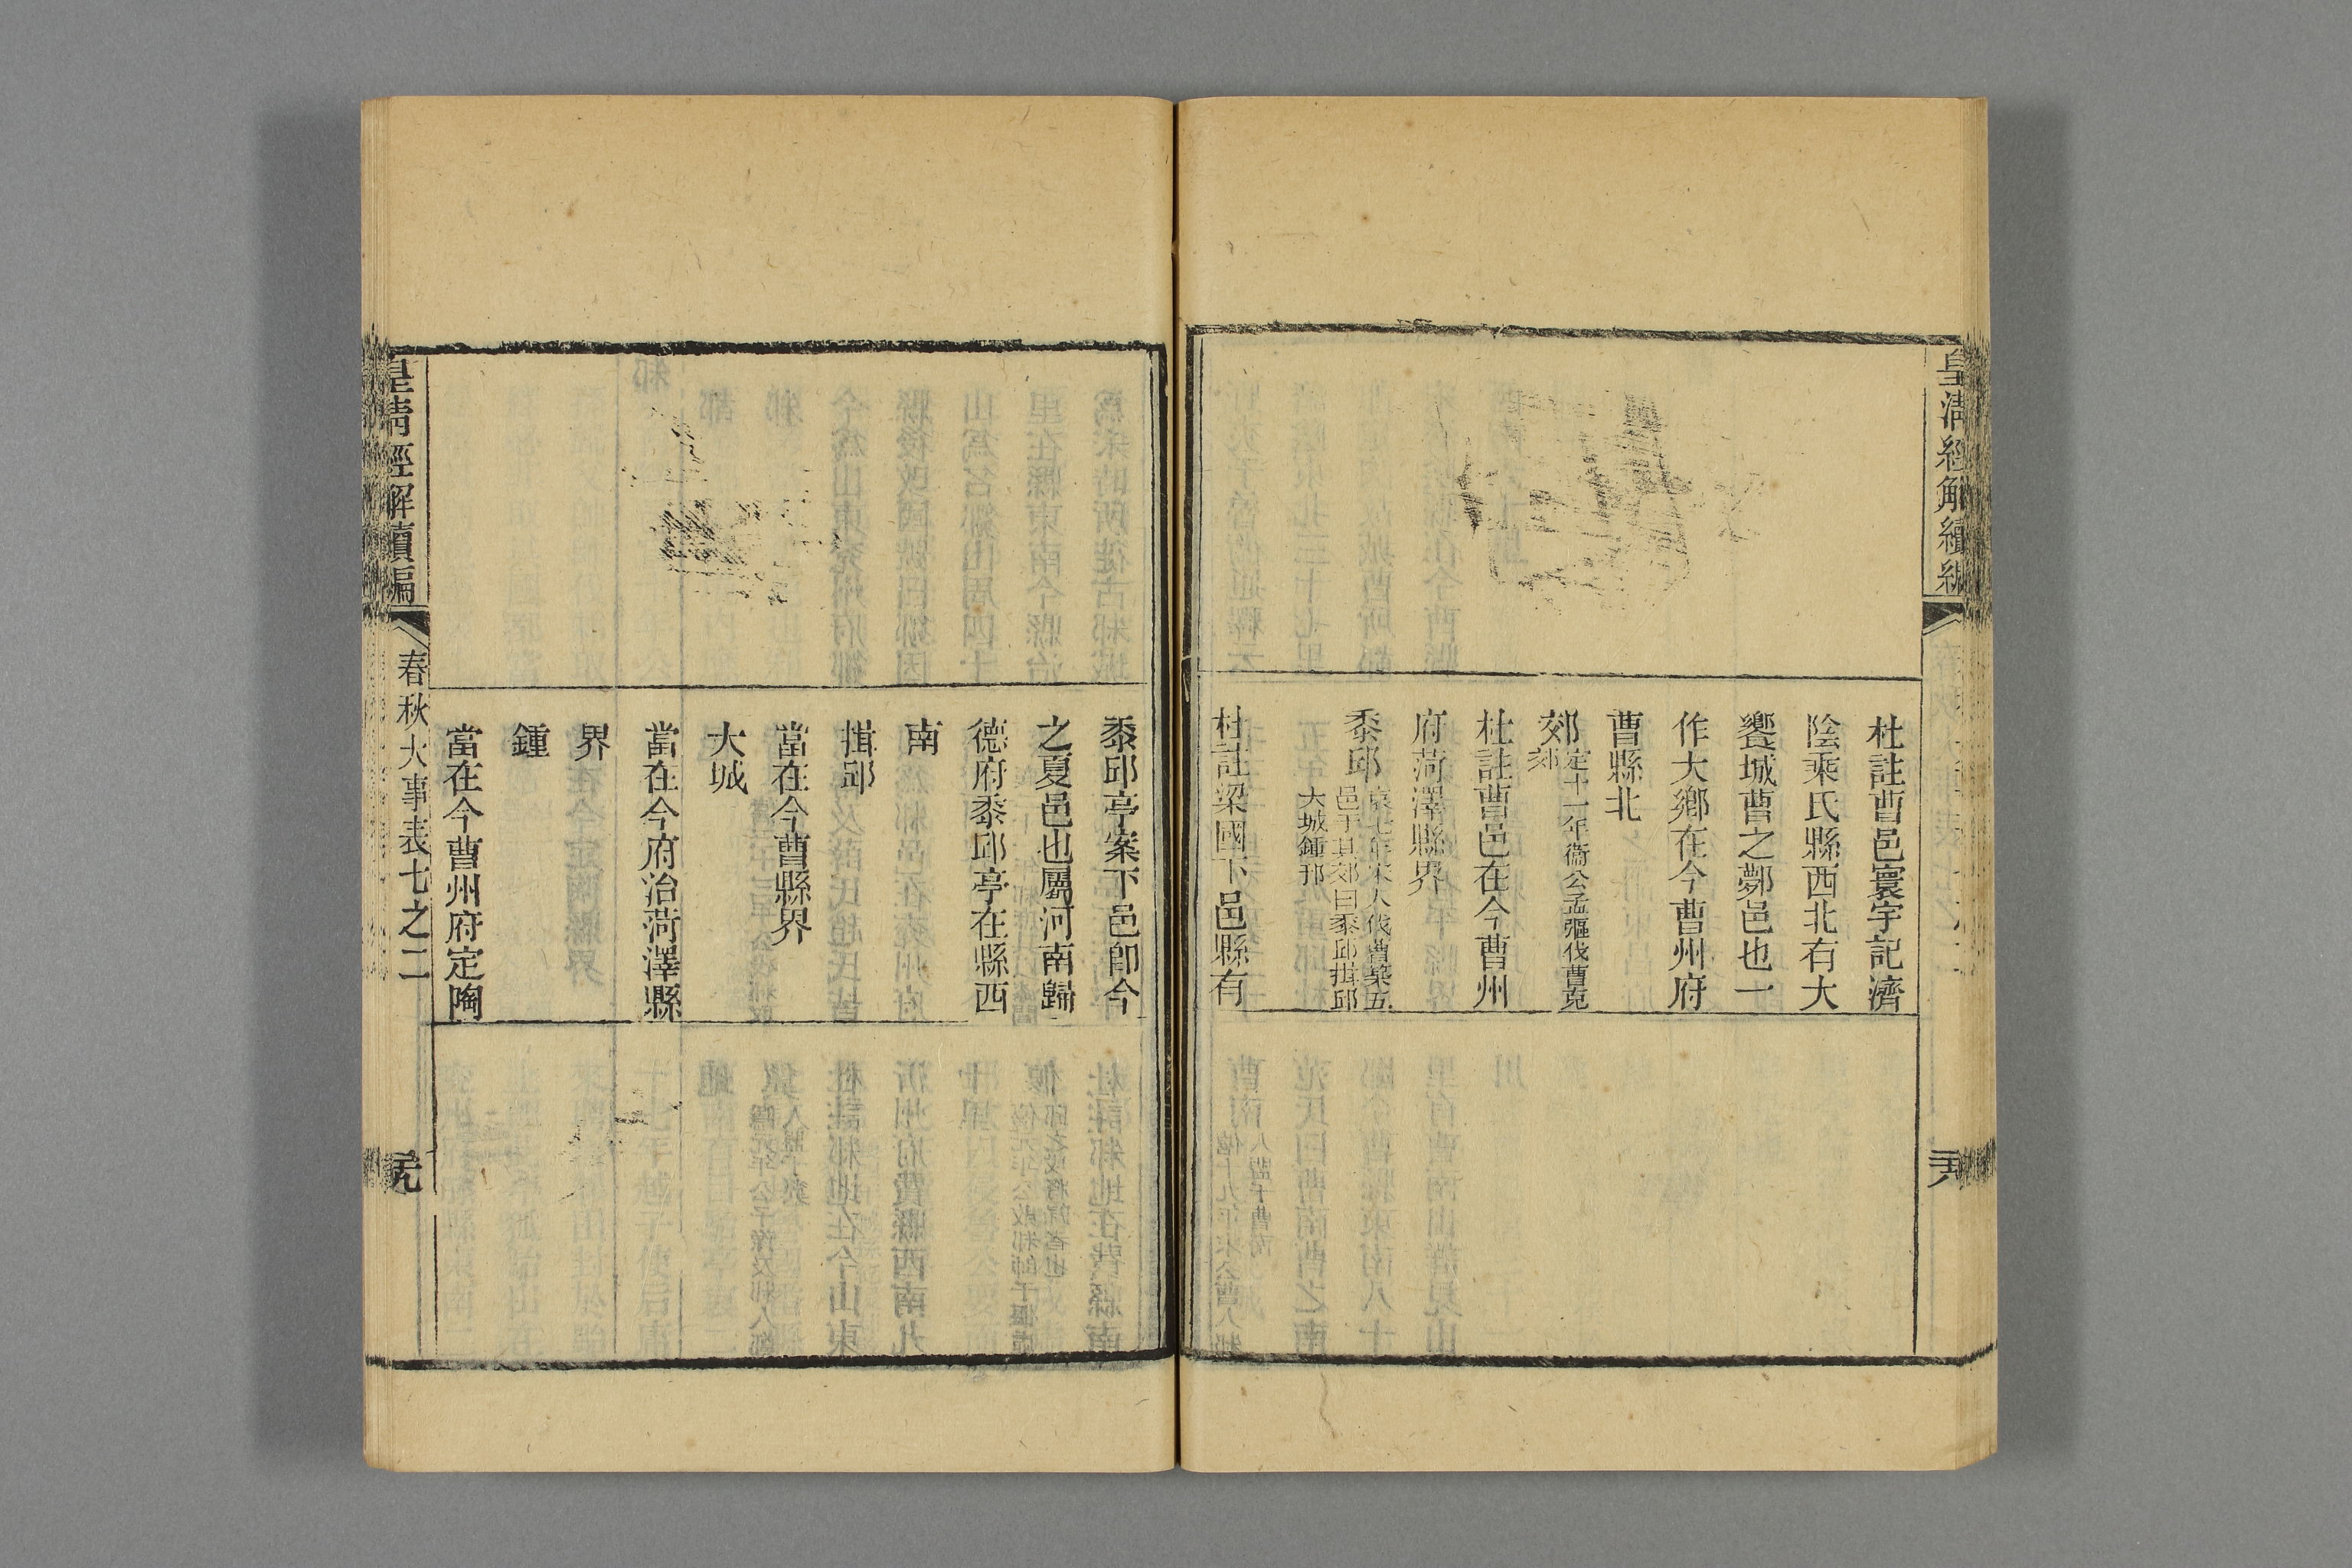 皇清經解續編
杜註曹邑寰宇記濟
陰乘氏縣西北有大
饗城曹之鄸邑也一
作大鄉在今曹州府
曹縣北
郊定十二年衞公孟彄伐曹克
郊
杜註曹邑在今曹州
府菏澤縣界
黍邱哀七年宋人伐曹築五
邑于其郊曰黍邱揖邱
大城鍾邘
杜註梁國下邑縣有
黍邱亭案下邑卽今
之夏邑也屬河南歸
德府黍邱亭在縣西
南
揖邱
當在今曹縣界
大城
當在今府治菏澤縣
界
鍾
當在今曹州府定陶
皇清經解續編
春秋大事表七之二